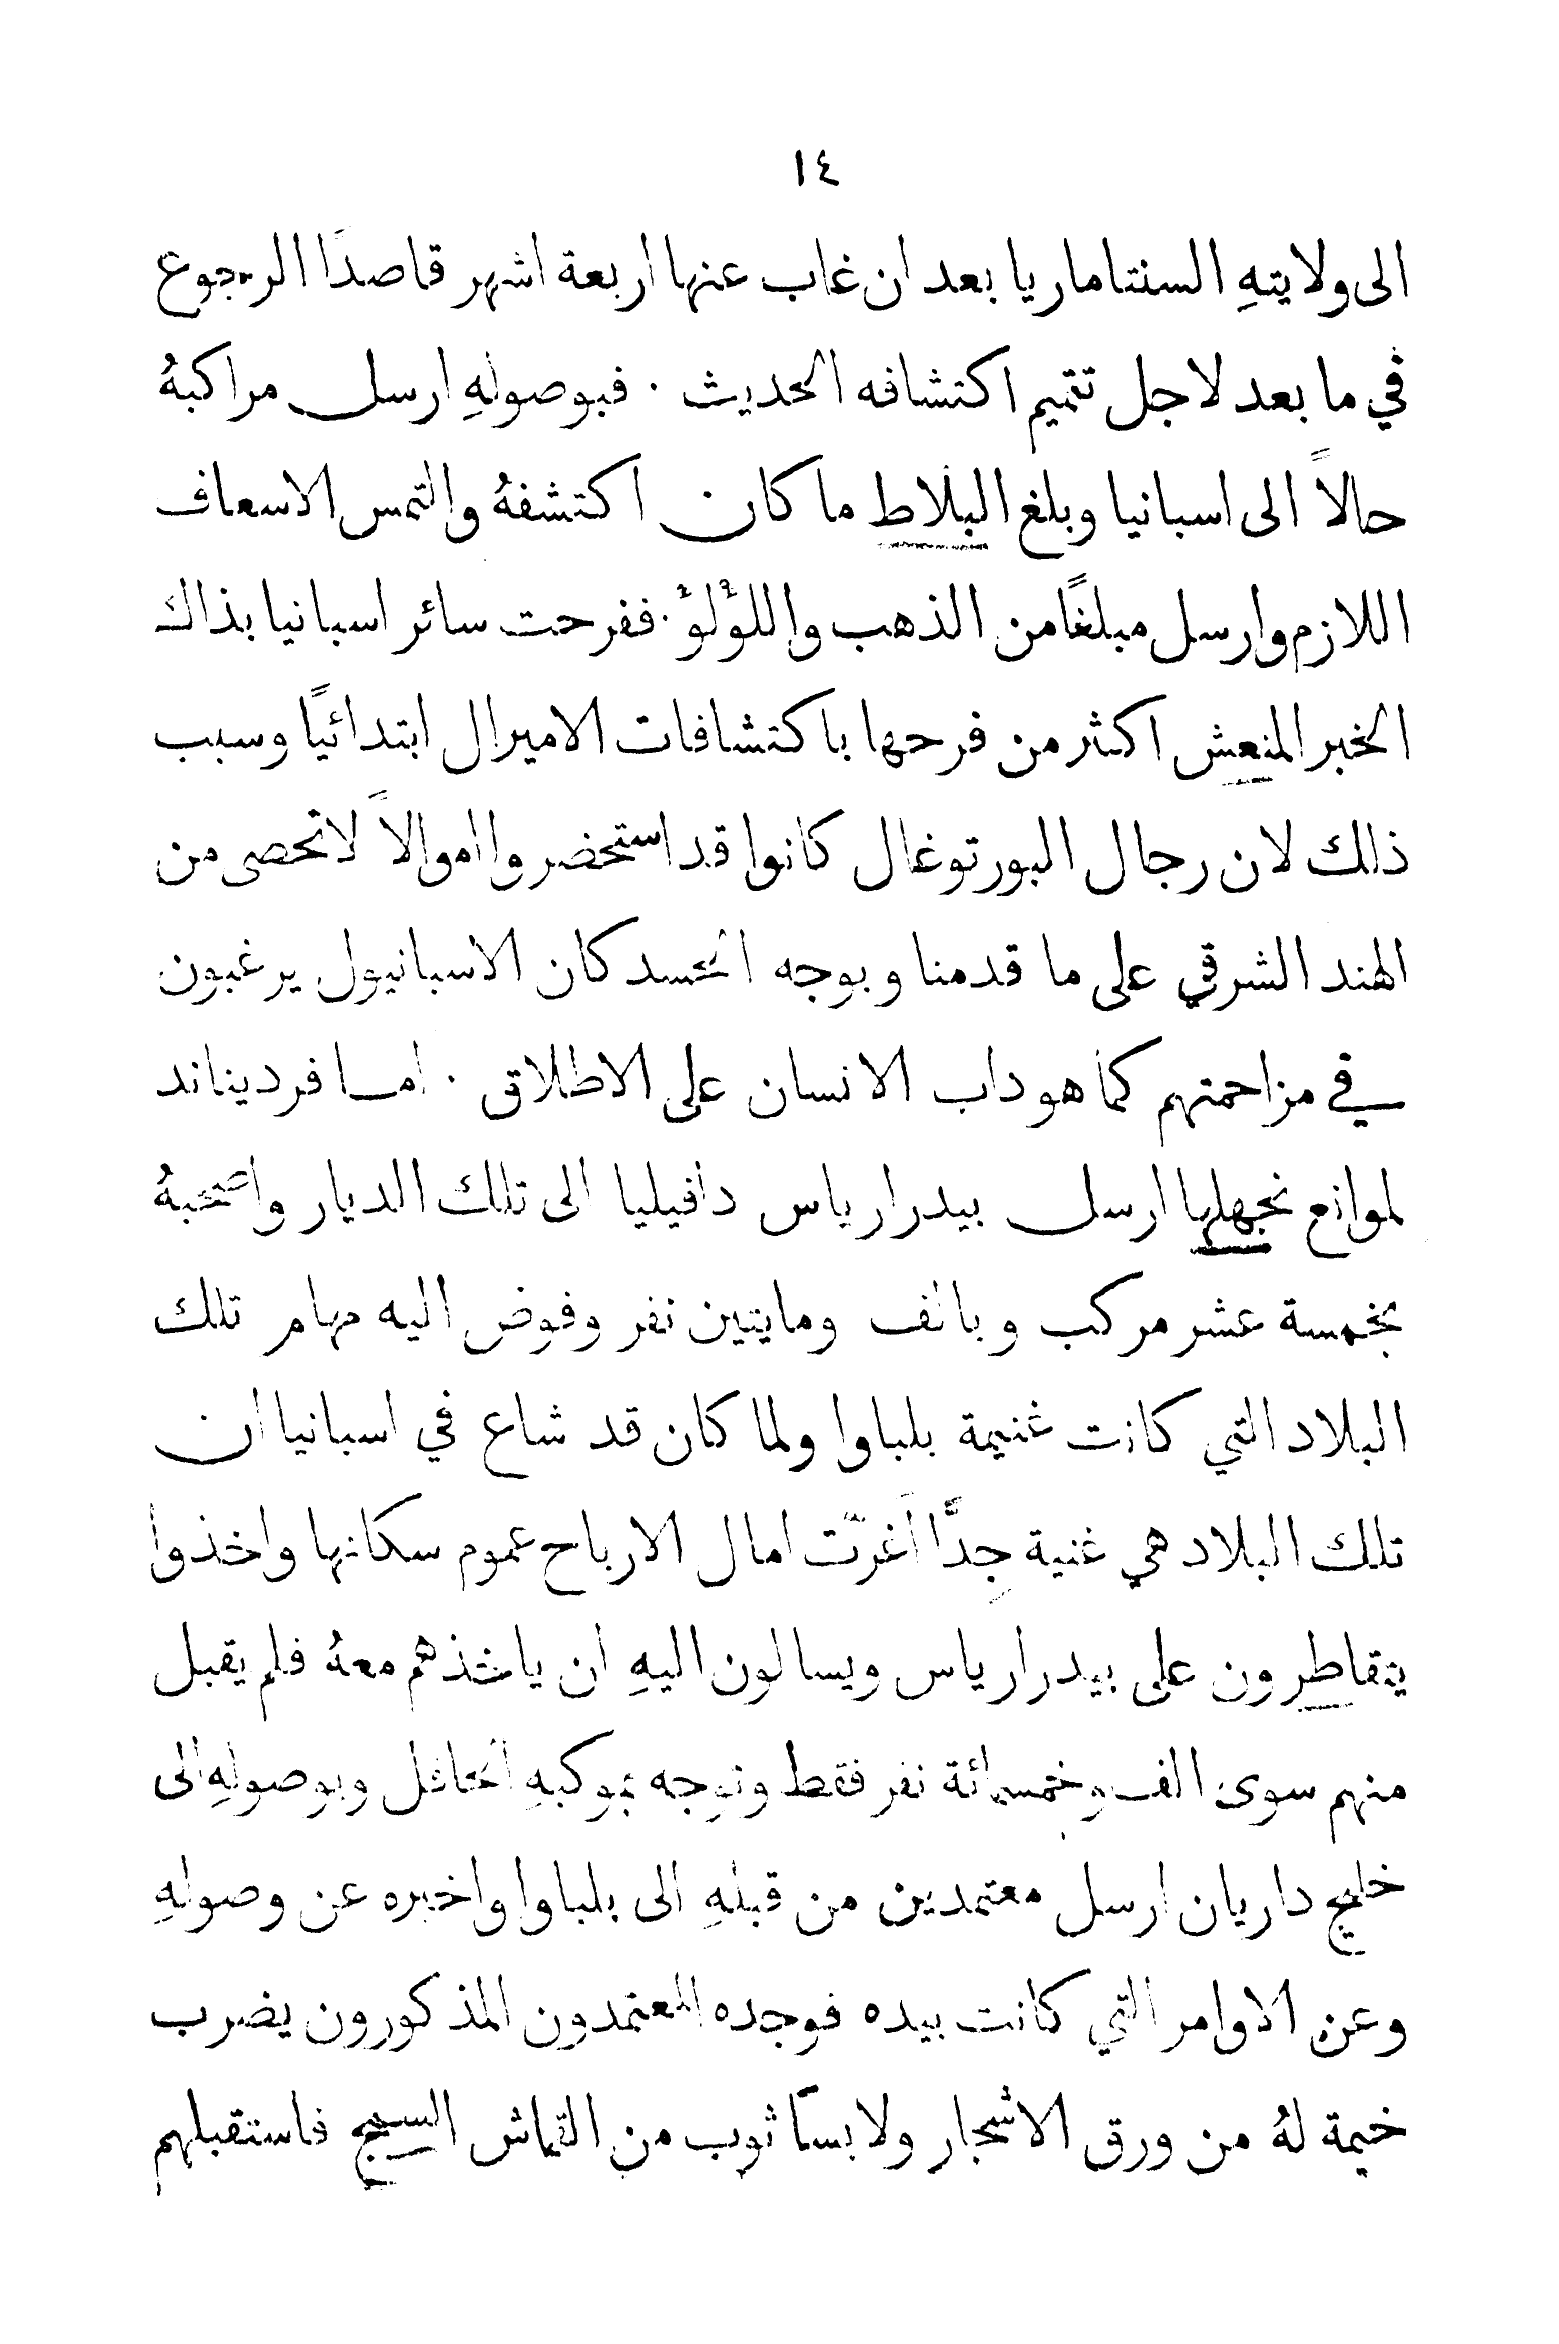 ١٤
الى ولايتهِ السنتاماريا بعد ان غاب عنها اربعة اشهر قاصدًا الرجوع
في ما بعد لاجل تتميم اكتشافه الحديث . فبوصولهِ ارسل مراكبهُ
حالاً الى اسبانيا وبلغ البلاط ما كان اكتشفهُ والتمس الاسعاف
اللازم وارسل مبلغًا من الذهب واللؤلؤ . ففرحت سائر اسبانيا بذاك
الخبر المنعش اكثر من فرحها باكتشافات الاميرال ابتدائيًا وسبب
ذلك لان رجال البورتوغال كانوا قد استحضروا اموالاً لا تحصى من
الهند الشرقي على ما قدمنا وبوجه الحسد كان الاسبانيول يرغبون
في مزاحمتهم كما هو داب الانسان على الاطلاق . اما فرديناند
لموانع نجهلها ارسل بيدرارياس دافيليا الى تلك الديار واصحبهُ
بخمسة عشر مركب وبالف ومايتين نفر وفوض اليه مهام تلك
البلاد التي كانت غنيمة بلباوا ولما كان قد شاع في اسبانيا ان
تلك البلاد هي غنية جِدًّا أغرّت امال الارباح عموم سكانها واخذوا
يتقاطرون على بيدرارياس ويسالون اليهِ ان ياخذهم معهُ فلم يقبل
منهم سوى الف وخمسمائة نفر فقط وتوجه بموكبهِ الحافل وبوصولهِ الى
خليج داريان ارسل معتمدين من قبلهِ الى بلباوا واخبره عن وصولهِ
وعن الاوامر التي كانت بيده فوجده المعتمدون المذكورون يضرب
خيمة لهُ من ورق الاشجار ولابسًا ثوب من القماش السميج فاستقبلهم